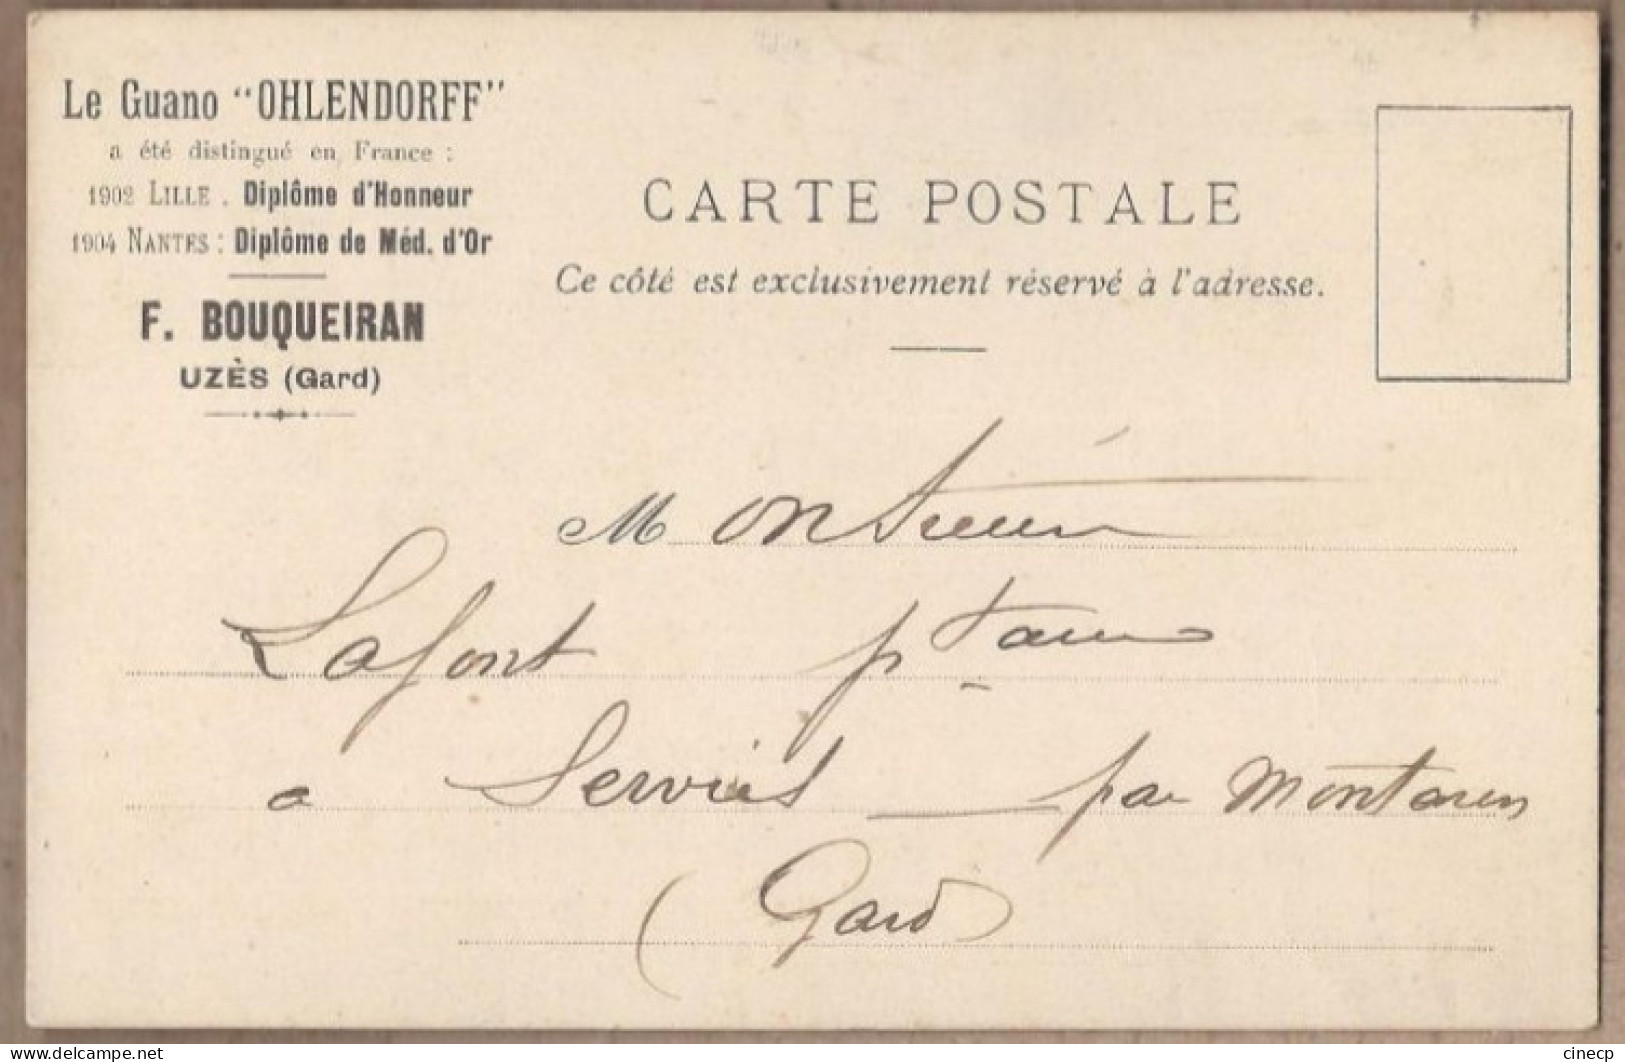 Le Guano "OHLENDORFF"
a été distingué en France :
1902 LILLE . Diplôme d'Honneur
1904 NANTES : Diplôme de Méd. d'Or
F. BOUQUEIRAN
UZÈS (Gard)
CARTE POSTALE
Ce côté est exclusivement réservé à l'adresse.
Monsieur
Lafont
a Serviès par Montaren
(Gard)
delcampe.net
cinecp